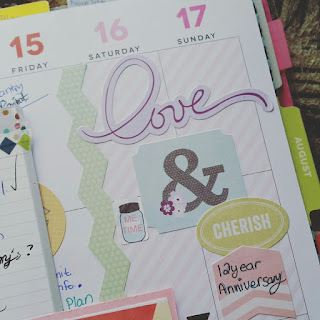 15
FRIDAY
16
SATURDAY
17
SUNDAY
love
&
ME
TIME
CHERISH
12 year
Anniversary
Plan
AUGUST